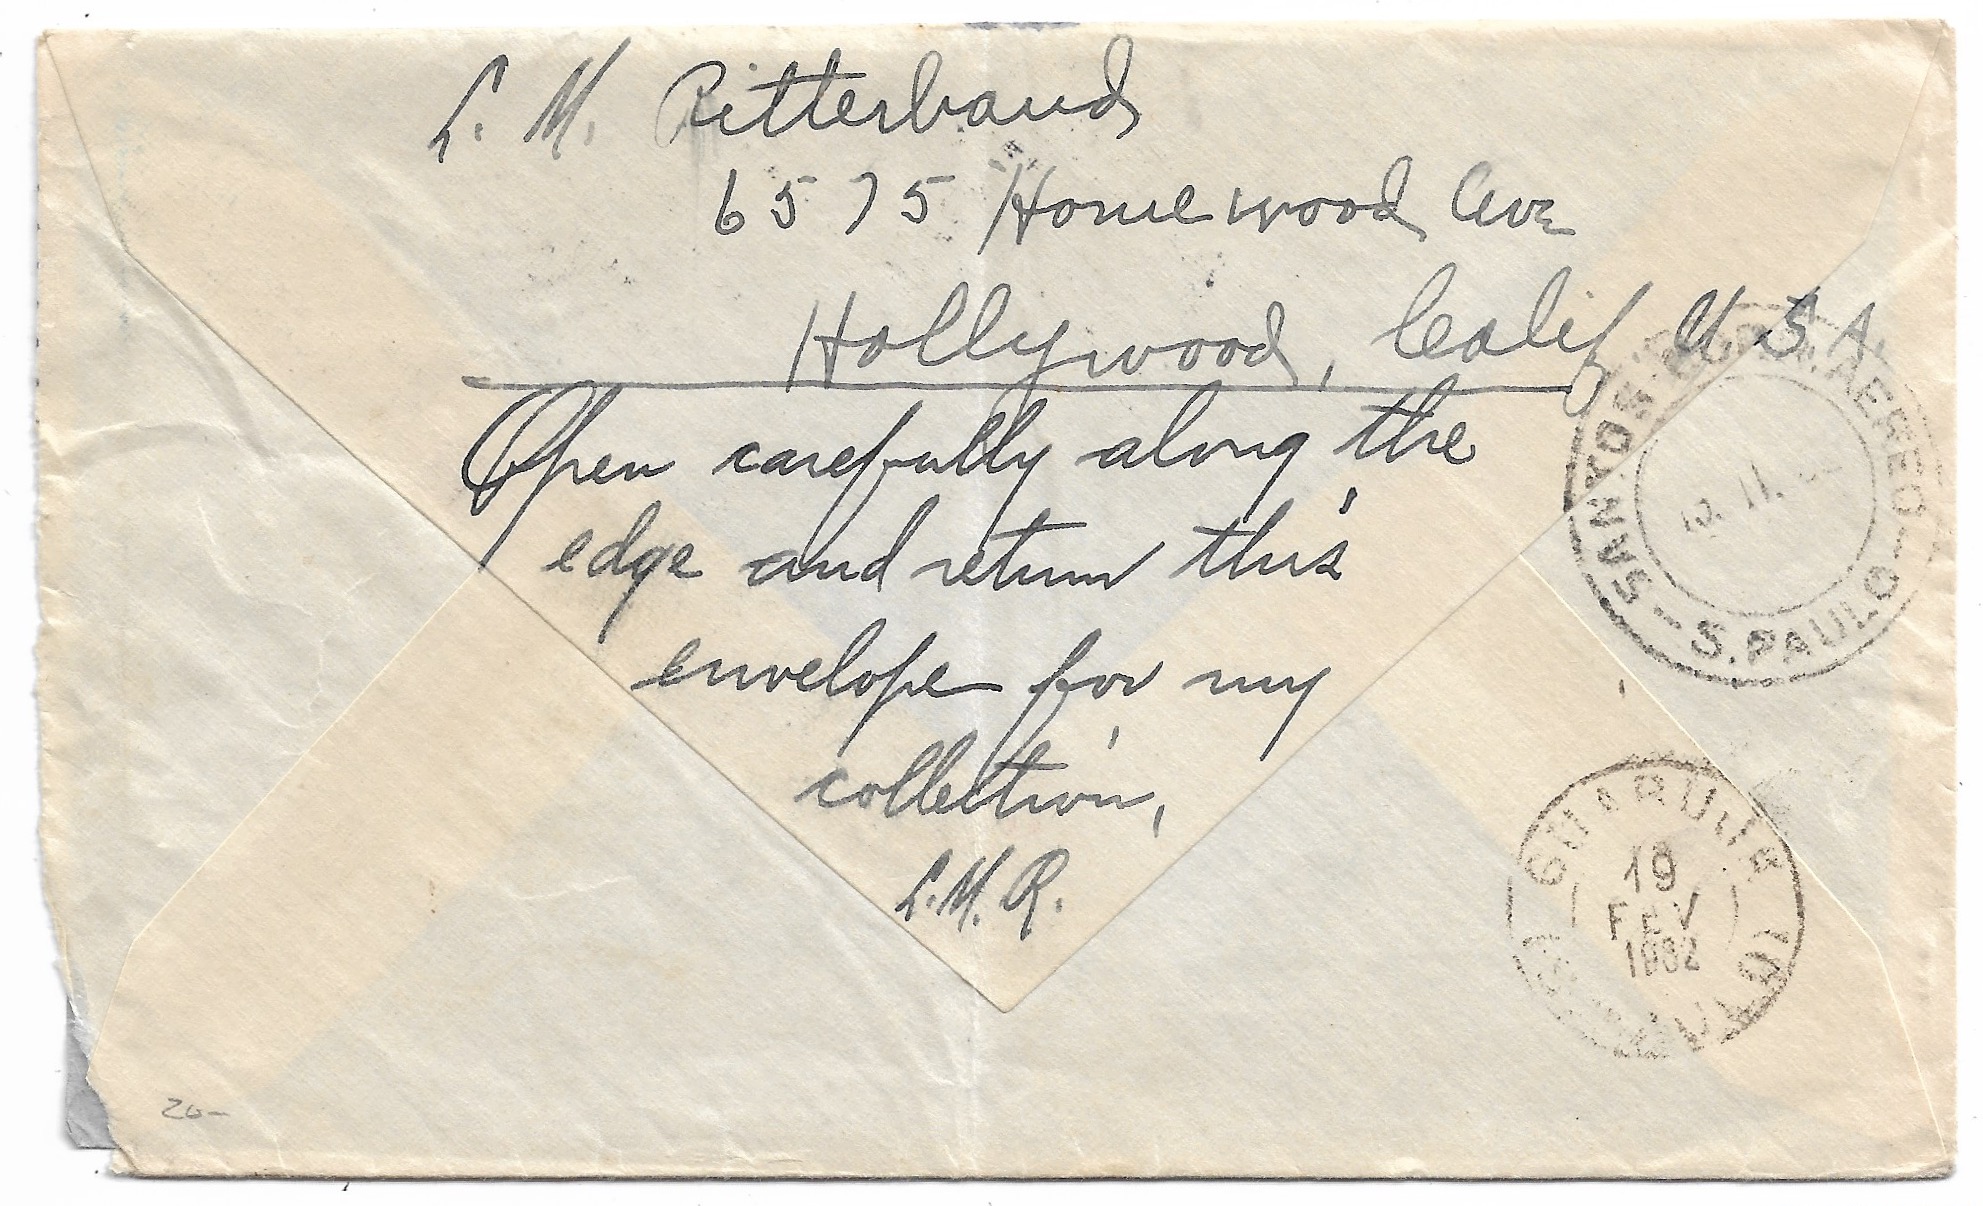 L. M. Ritterband
6575 Homewood Ave
Hollywood, Calif U S A.
Open carefully along the
edge and return this
envelope for my
collection,
L.M.R.
SANTOS AEREO
S. PAULO
GUARUJA
19
FEV
1932
20-